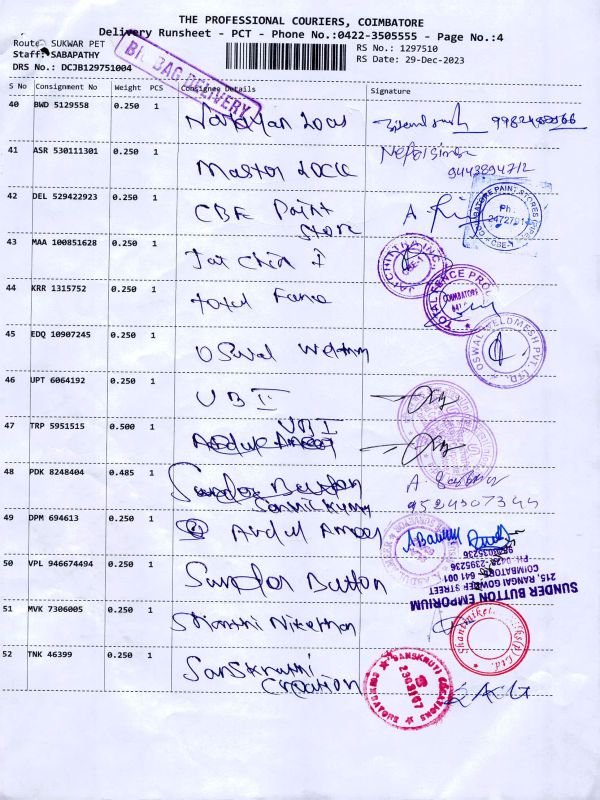 THE PROFESSIONAL COURIERS, COIMBATORE
Delivery Runsheet - PCT - Phone No.:0422-3505555 - Page No.:4
Route: SUKWAR PET
Staff: SABAPATHY
DRS No.: DCJB129751004
BIG BAG DELIVERY
RS No.: 1297510
RS Date: 29-Dec-2023
S No Consignment No Weight PCS Consignee Details Signature
40 BWD 5129558 0.250 1 Narayan Locus
41 ASR 530111301 0.250 1 Master Lock
9443894712
42 DEL 529422923 0.250 1 CBE Paint
Store
COIMBATORE PAINT STORES
Ph:
2472791
CBE-1
43 MAA 100851628 0.250 1 Jai Chitra I
JAI CHITHRA INC.
CBE-1
44 KRR 1315752 0.250 1 Total Fence
TOTAL FENCE PRO
COIMBATORE
45 EDQ 10907245 0.250 1 Oswal Weldmesh
OSWAL WELDMESH PVT. LTD.
46 UPT 6064192 0.250 1 UBI
47 TRP 5951515 0.500 1 UBI
48 PDK 8248404 0.485 1 Sunder Button
Senthil Kumar
9524307344
49 DPM 694613 0.250 1 Abdul Ameer
50 VPL 946674494 0.250 1 Sunder Button
SUNDER BUTTON EMPORIUM
215, RANGAI GOWDER STREET
COIMBATORE - 641 001
PH: 0422-2395236
51 MVK 7306005 0.250 1 Shanthi Nikethan
52 TNK 46399 0.250 1 Sanskruthi
Creation
SANSKRUTI CREATIONS